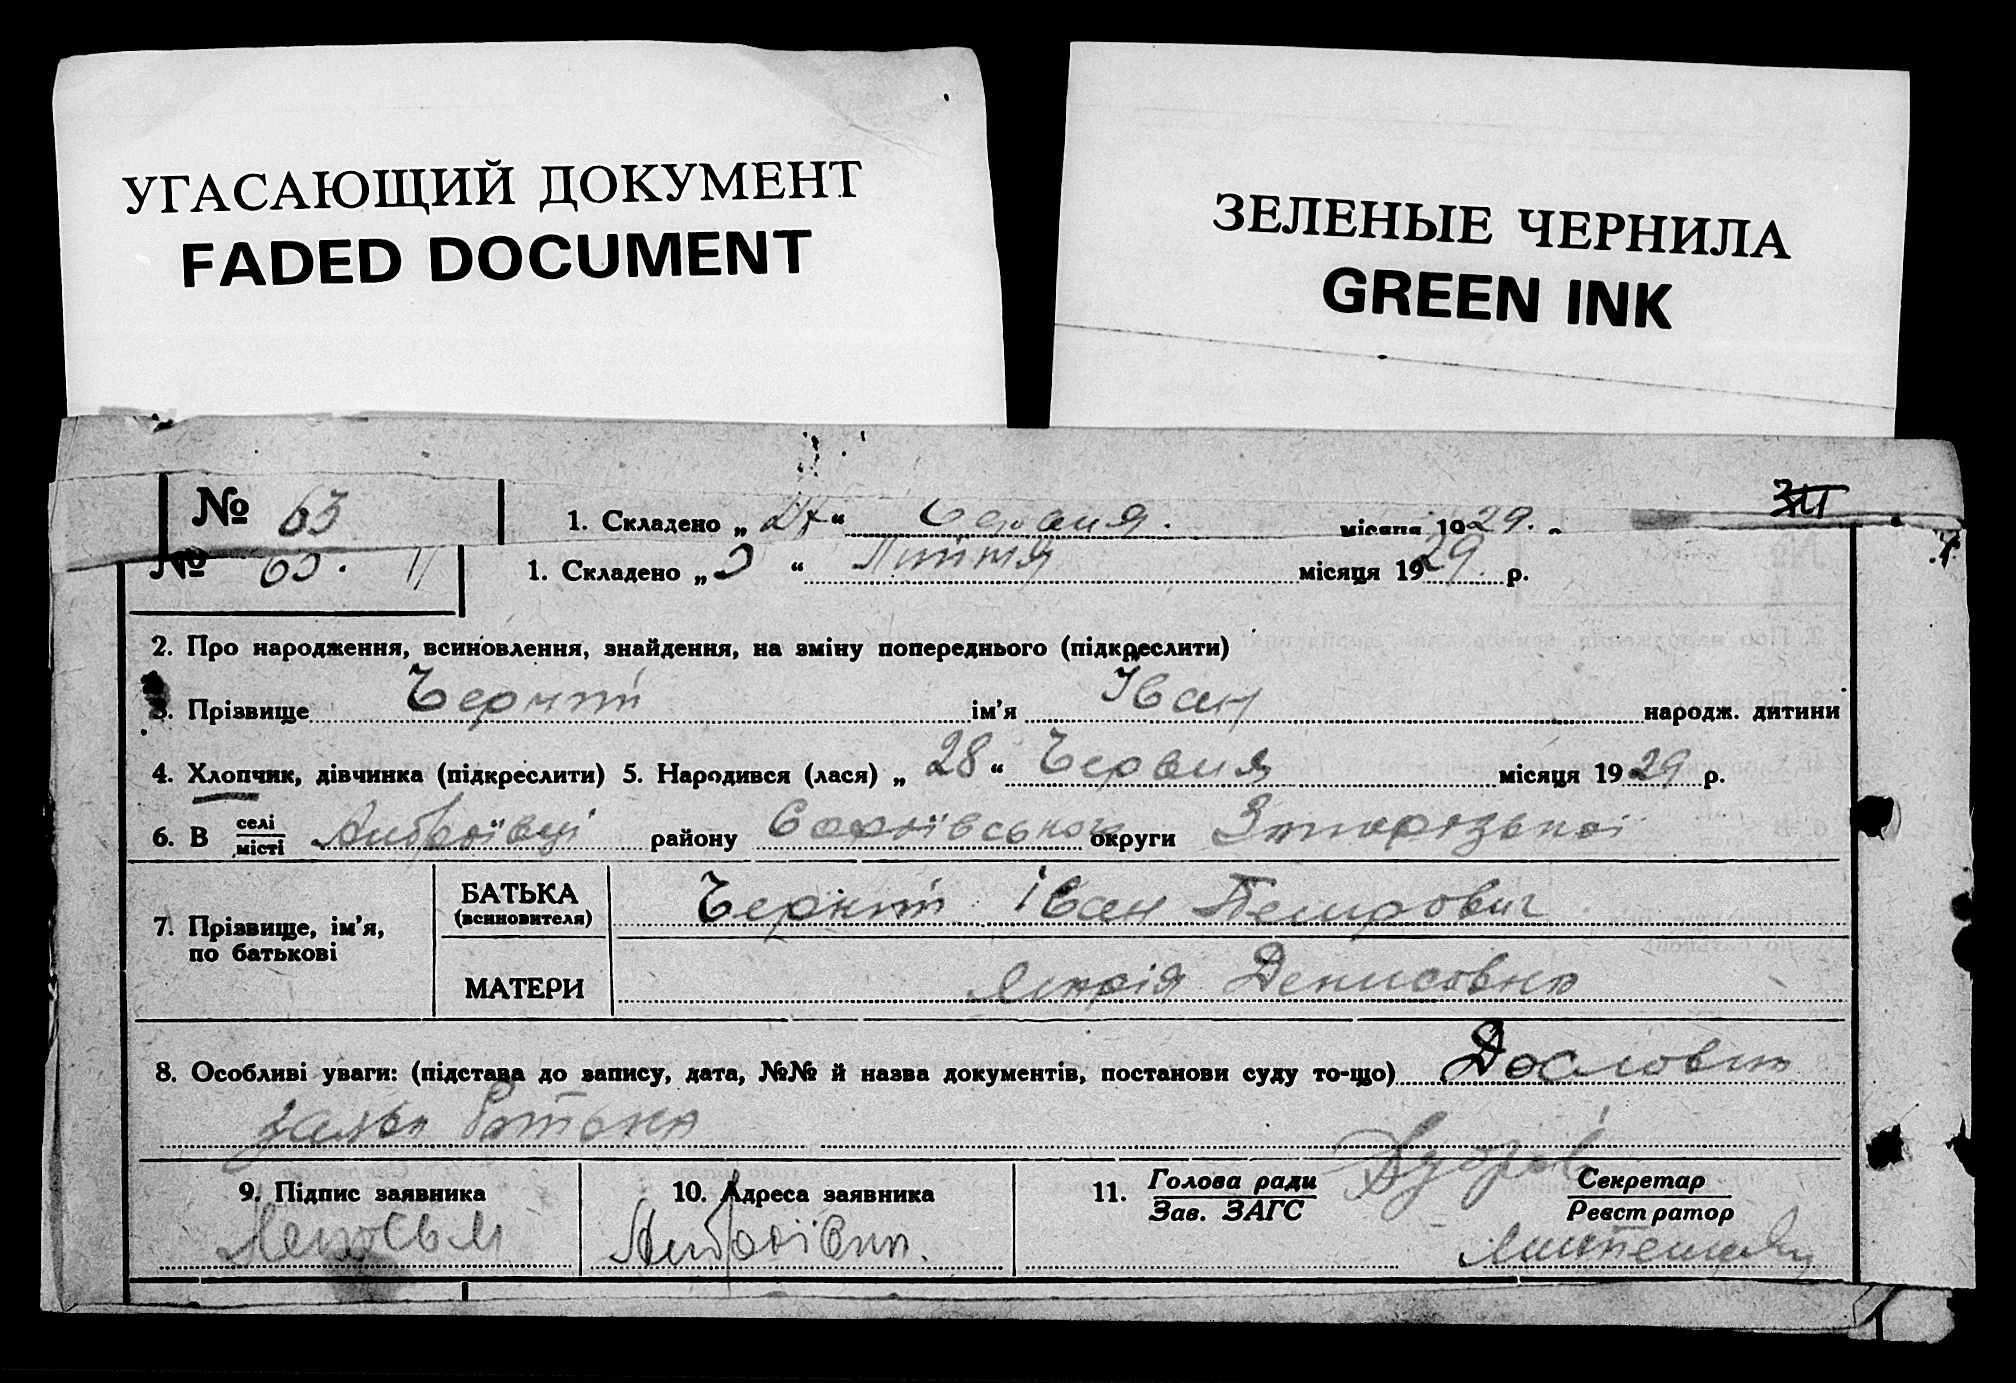 УГАСАЮЩИЙ ДОКУМЕНТ
FADED DOCUMENT
ЗЕЛЕНЫЕ ЧЕРНИЛА
GREEN INK
№ 63
1. Складено „ “ Червня місяця 1929.
№ 65. 1. Складено „3“ Липня місяця 1929 р.
2. Про народження, всиновлення, знайдення, на зміну попереднього (підкреслити)
3. Прізвище ім'я Іван народж. дитини
4. Хлопчик, дівчинка (підкреслити) 5. Народився (лася) „28“ Червня місяця 1929 р.
6. В селі місті Андріївці району округи Запорізької
7. Прізвище, ім'я, по батькові
БАТЬКА (всиновителя) Іван Петрович
МАТЕРИ Марія Денисовна
8. Особливі уваги: (підстава до запису, дата, №№ й назва документів, постанови суду то-що) Дословна
заява батька
9. Підпис заявника
10. Адреса заявника
11. Голова ради Зав. ЗАГС
Секретар Реєстратор